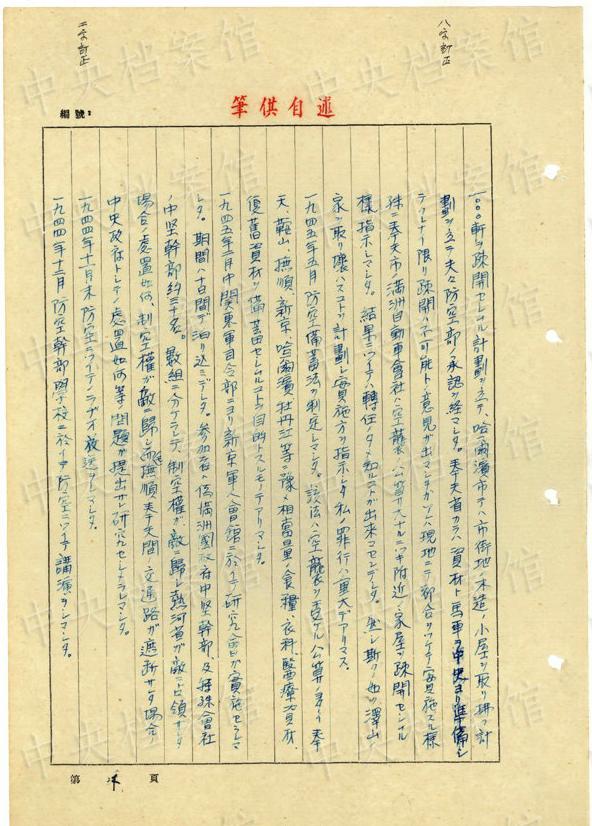 八字訂正
二字訂正
筆供自述
編號：
一〇〇軒ヲ疎開セシムル計劃ヲ立テ、哈爾濱市デハ市街地ノ木造ノ小屋ヲ取リ拂フ計
劃ヲ立テ夫々防空部ノ承認ヲ経マシタ。奉天省カラハ資材ト馬車ヲ中央ヨリ準備シ
テクレナイ限リ疎開ハ不可能トノ意見ガ出マシタガソレハ現地ニテ都合ヲツケテ実施スル様
殊ニ奉天市ノ満洲自動車會社ハ空襲ノ公算大ナルニツキ附近ノ家屋ヲ疎開セシムル
様指示シマシタ。結果ニツイテハ轉任ノタメ知ルコトガ出来マセンデシタ。然シ斯クノ如ク澤山
家ヲ取リ壊スコトヲ計劃シ実施方ヲ指示シタ私ノ罪行ハ重大デアリマス。
一九四五年五月防空備蓄法ヲ制定シマシタ。該法ハ空襲ヲ受ケル公算ノ多イ奉
天、鞍山、撫順、新京、哈爾濱、牡丹江等ニ豫メ相當量ノ食糧、衣料、醫療資材、
復舊資材ヲ備蓄セシムルコトヲ目的トスルモノデアリマシタ。
一九四五年二月中関東軍司令部ニヨリ新京軍人會館ニ於イテ研究會ガ実施セラレマ
シタ。期間ハ十日間デ泊リ込ミデシタ。参加者ハ偽満洲國政府中堅幹部、及特殊會社
ノ中堅幹部約三十名。数組ニ分ケラレテ、制空權ガ敵ニ歸シ熱河省ガ敵ニ占領サレタ
場合ノ處置如何、制空權ガ敵ニ歸シ撫順、奉天間ノ交通路ガ遮断サレタ場合ノ
中央政府トシテノ處置如何等ノ問題ガ提出サレ研究セシメラレマシタ。
一九四四年十一月末防空ニツイテノラヂオ放送ヲシマシタ。
一九四四年十二月防空幹部學校ニ於イテ防空ニツイテ講演ヲシマシタ。
第 頁
中央档案馆